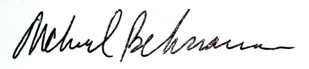 Michael Behrman